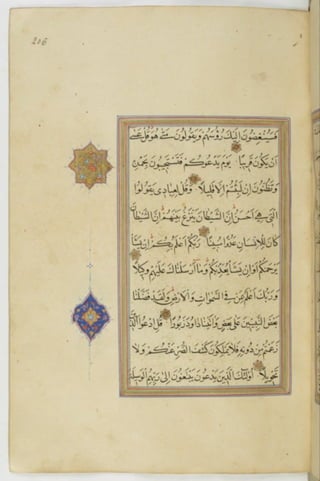 206
فسينغضون اليك رؤسهم ويقولون متى هو قل عسى
ان يكون قريبا يوم يدعوكم فتستجيبون بحمده
وتظنون ان لبثتم الا قليلا وقل لعبادى يقولوا
التى هى احسن ان الشيطان ينزغ بينهم ان الشيطان
كان للانسان عدوا مبينا ربكم اعلم بكم ان يشا
يرحمكم او ان يشا يعذبكم وما ارسلناك عليهم وكيلا
وربك اعلم بمن فى السموات والارض ولقد فضلنا
بعض النبيين على بعض واتينا داود زبورا قل ادعوا الذين
زعمتم من دونه فلا يملكون كشف الضر عنكم ولا
تحويلا اولئك الذين يدعون يبتغون الى ربهم الوسيلة